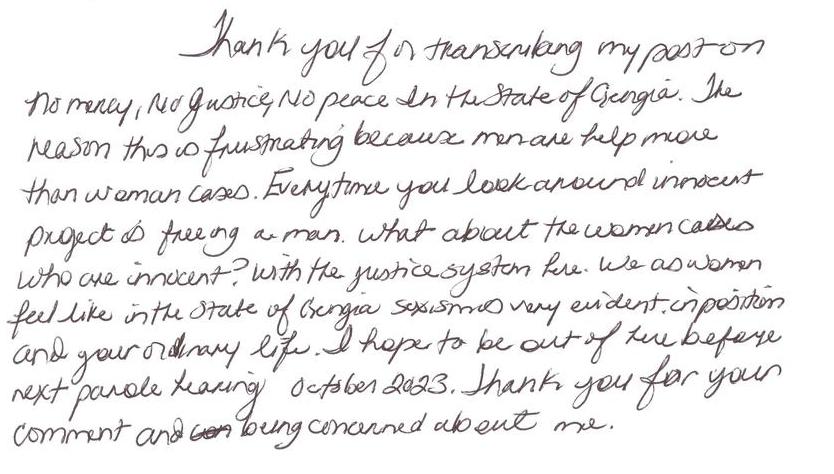 Thank you for transcribing my post on
No mercy, No Justice, No peace In the State of Georgia. The
reason this is frustrating because men are help more
than woman cases. Everytime you look around innocent
project is freeing a man. What about the women cases
who are innocent? With the justice system here. We as women
feel like in the State of Georgia sexism is very evident. in position
and your ordinary life. I hope to be out of here before
next parole hearing October 2023. Thank you for your
comment and being concerned about me.